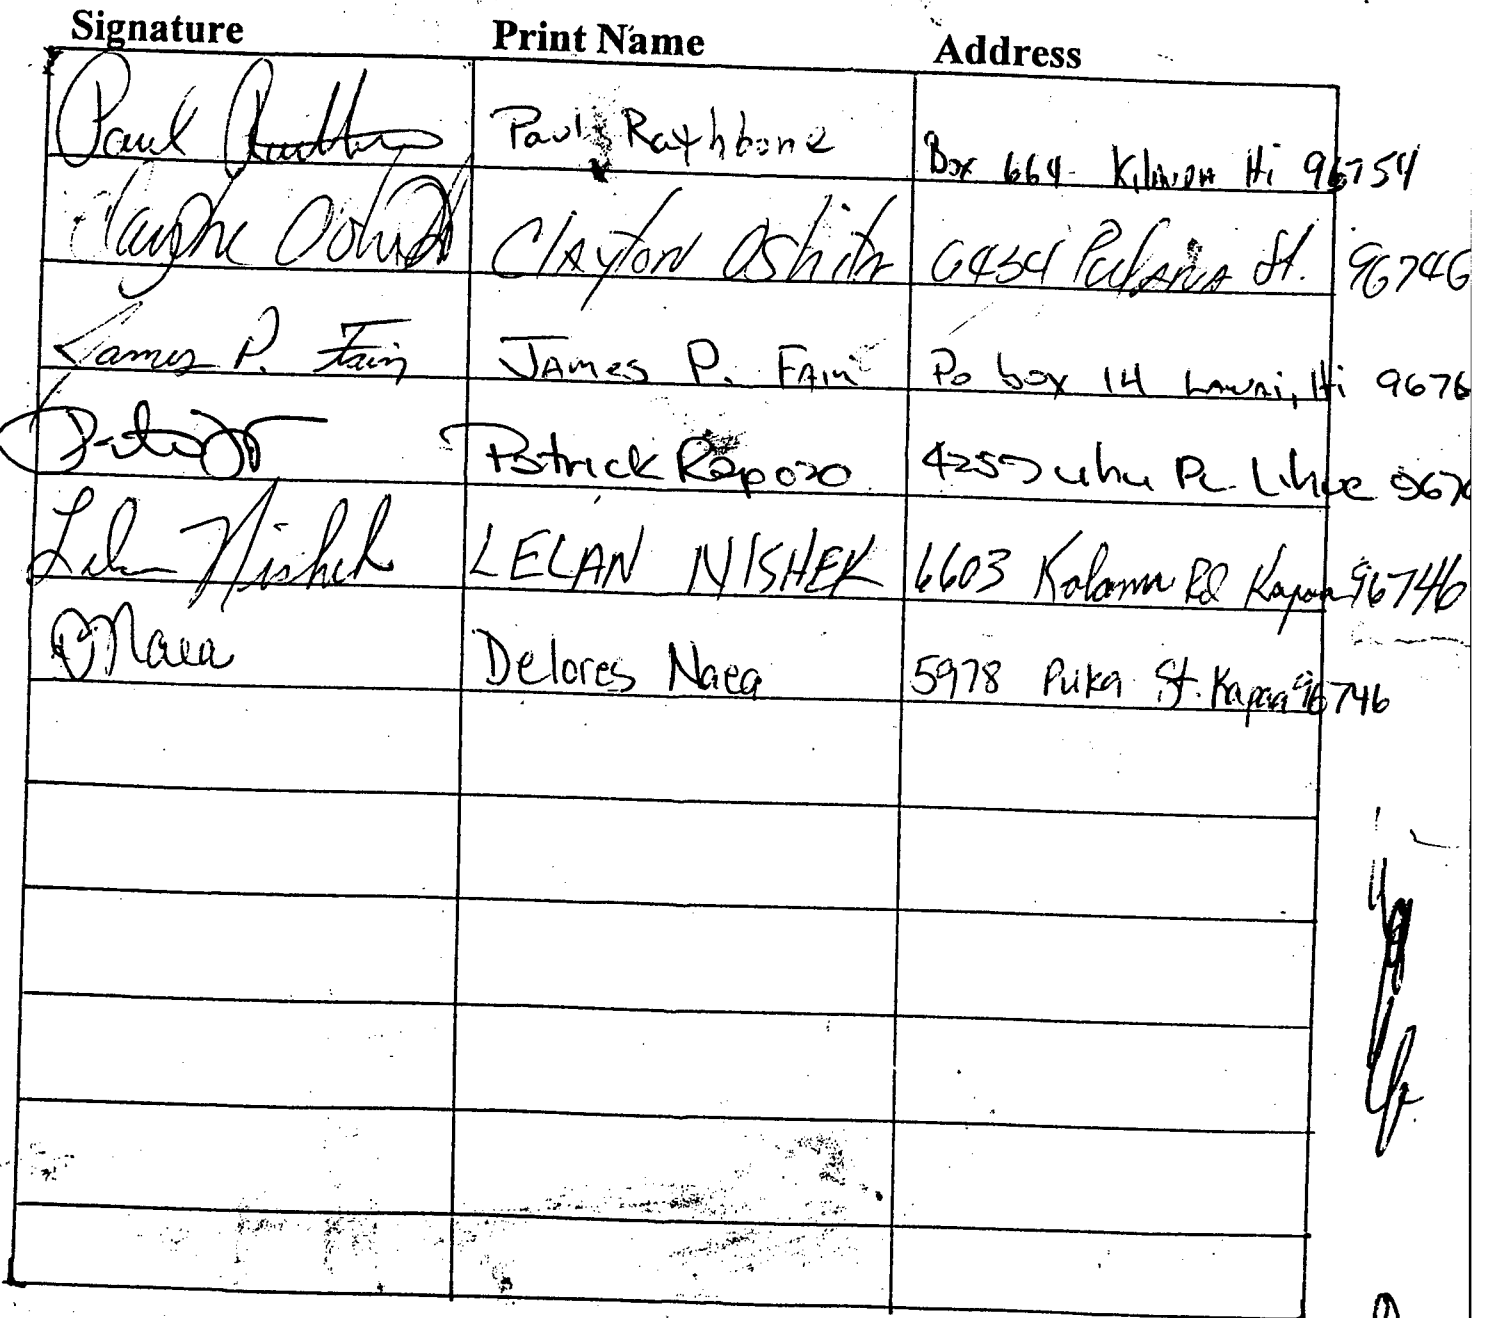 Signature Print Name Address
Paul Paul Rathbone Box 664 Kilauea Hi 96754
Clayton Oshita 6454 St. 96746
James P. Fain James P. Fain Po box 14 Lawai, Hi 9676
Patrick Raposo 4255 uhu PL. Lihue 9676
Lelan Nishek LELAN NISHEK 6603 Kalama Rd Kapaa 96746
DNaea Delores Naea 5978 Puka St. Kapaa 96746